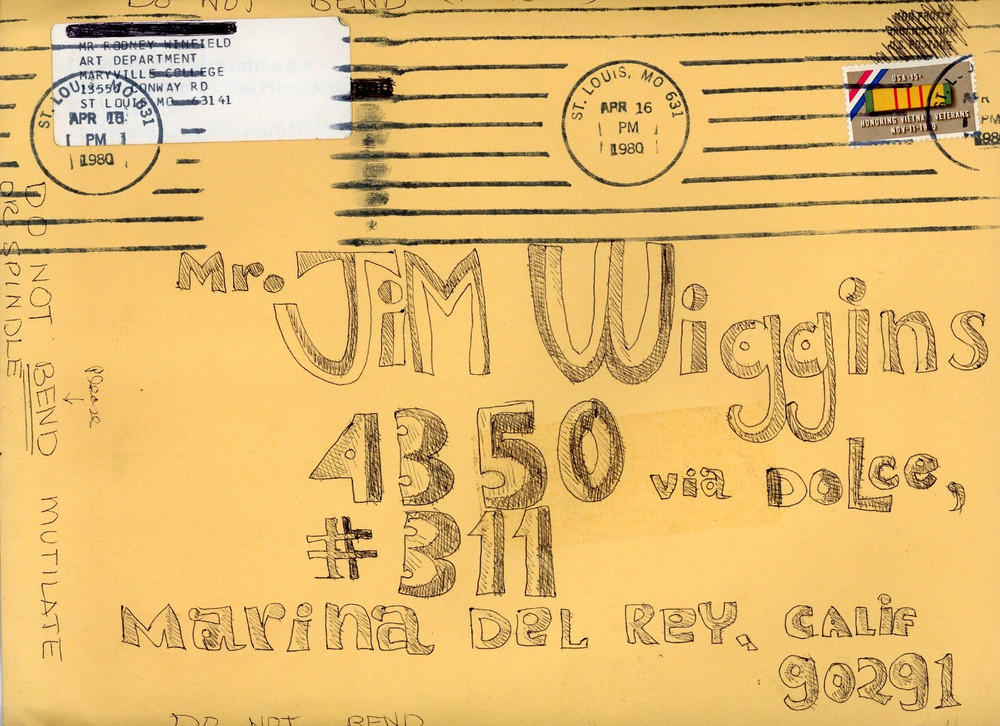 DO NOT BEND
MR RODNEY WINFIELD
ART DEPARTMENT
MARYVILLE COLLEGE
13550 CONWAY RD
ST LOUIS MO 63141
ST. LOUIS, MO 631
APR 16
PM
1980
ST. LOUIS, MO 631
APR 16
PM
1980
NON PROFIT
ORGANIZATION
US POSTAGE
USA 15c
HONORING VIETNAM VETERANS
NOV·11·1979
ST.
APR
PM
1980
Mr. JiM Wiggins
4350 via DoLce,
#311
Marina DeL ReY, CALiF
90291
DO NOT BEND MUTILATE
OR SPINDLE
Please
DO NOT BEND